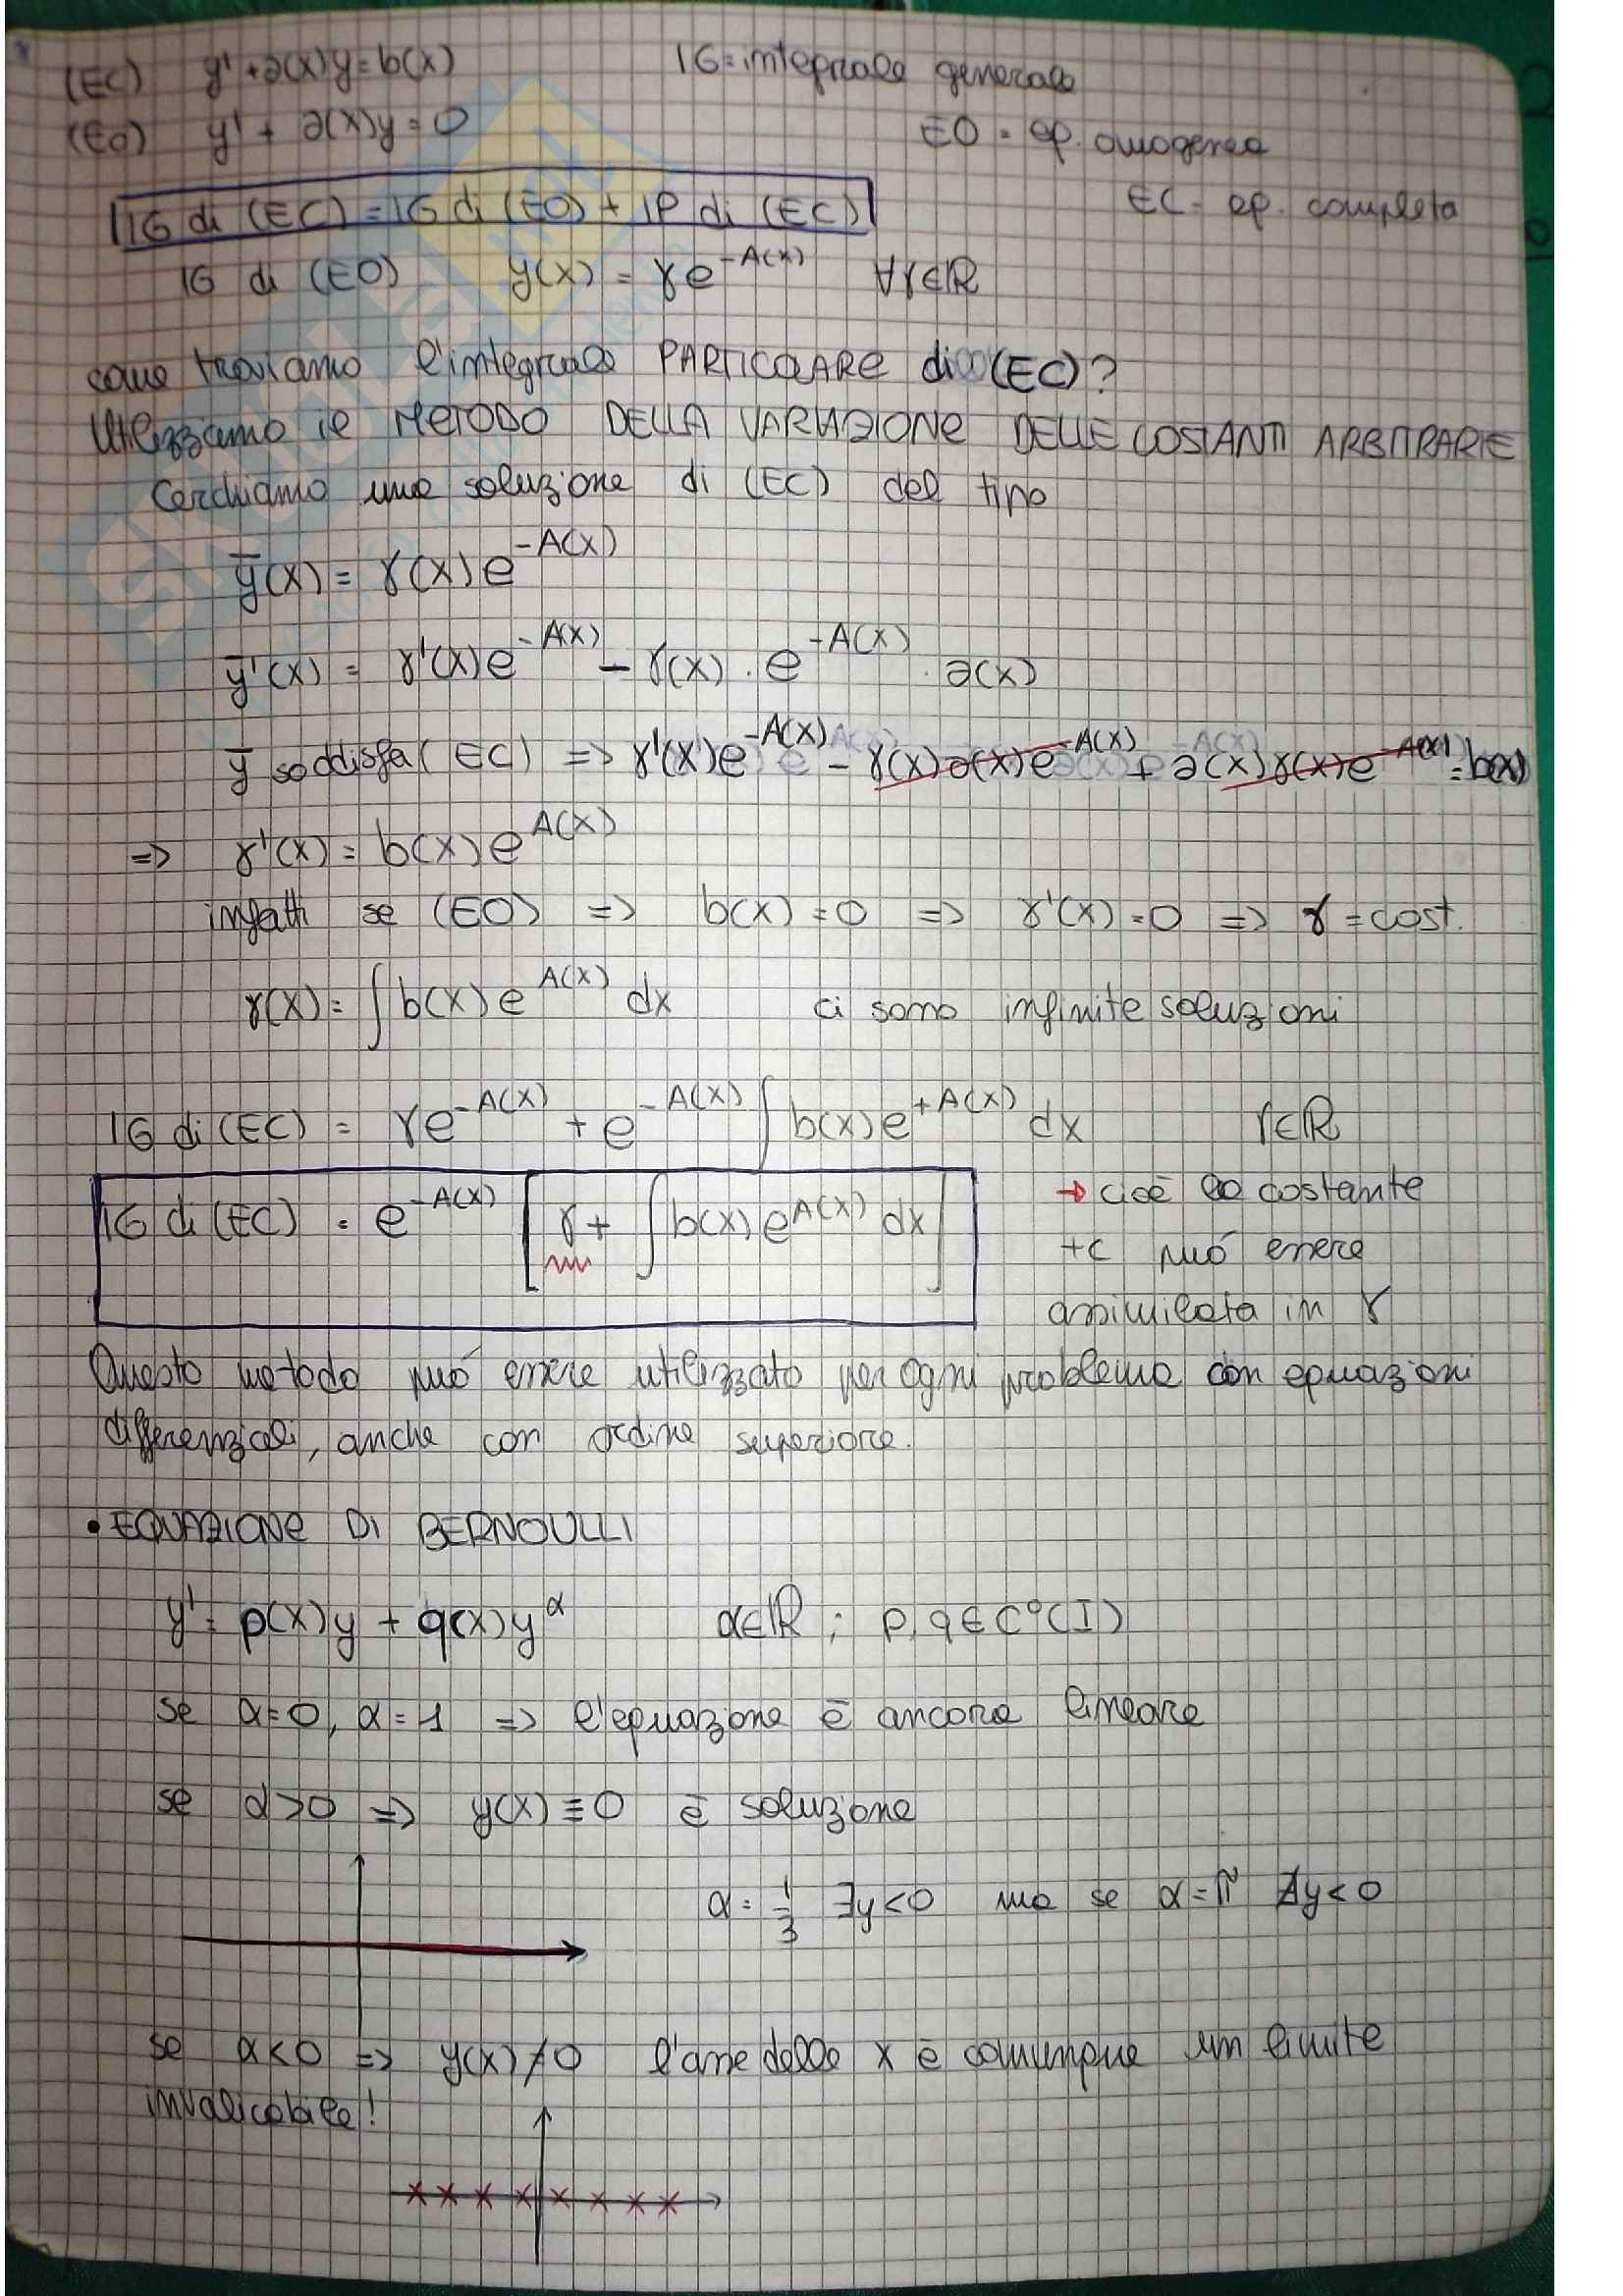 (EC) y' + a(x)y = b(x) IG = integrale generale
(EO) y' + a(x)y = 0 EO = eq. omogenea
IG di (EC) = IG di (EO) + IP di (EC) EC = eq. completa
IG di (EO) y(x) = γe^{-A(x)} ∀γ∈ℝ
come troviamo l'integrale PARTICOLARE di (EC)?
Utilizziamo il METODO DELLA VARIAZIONE DELLE COSTANTI ARBITRARIE
Cerchiamo una soluzione di (EC) del tipo
ȳ(x) = γ(x)e^{-A(x)}
ȳ'(x) = γ'(x)e^{-A(x)} - γ(x) · e^{-A(x)} · a(x)
ȳ soddisfa (EC) => γ'(x)e^{-A(x)} - γ(x)a(x)e^{-A(x)} + a(x)γ(x)e^{-A(x)} = b(x)
=> γ'(x) = b(x)e^{A(x)}
infatti se (EO) => b(x) = 0 => γ'(x) = 0 => γ = cost.
γ(x) = ∫ b(x)e^{A(x)} dx ci sono infinite soluzioni
IG di (EC) = γe^{-A(x)} + e^{-A(x)} ∫ b(x)e^{+A(x)} dx γ∈ℝ
IG di (EC) = e^{-A(x)} [γ + ∫ b(x)e^{A(x)} dx] → cioè la costante
+c può essere
assimilata in γ
Questo metodo può essere utilizzato per ogni problema con equazioni
differenziali, anche con ordine superiore.
• EQUAZIONE DI BERNOULLI
y' = p(x)y + q(x)y^α α∈ℝ ; p,q ∈ C°(I)
se α = 0, α = 1 => l'equazione è ancora lineare
se α > 0 => y(x) ≡ 0 è soluzione
α = 1/3 ∃y<0 ma se α = π ∄y<0
se α < 0 => y(x) ≠ 0 l'asse delle x è comunque un limite
invalicabile!